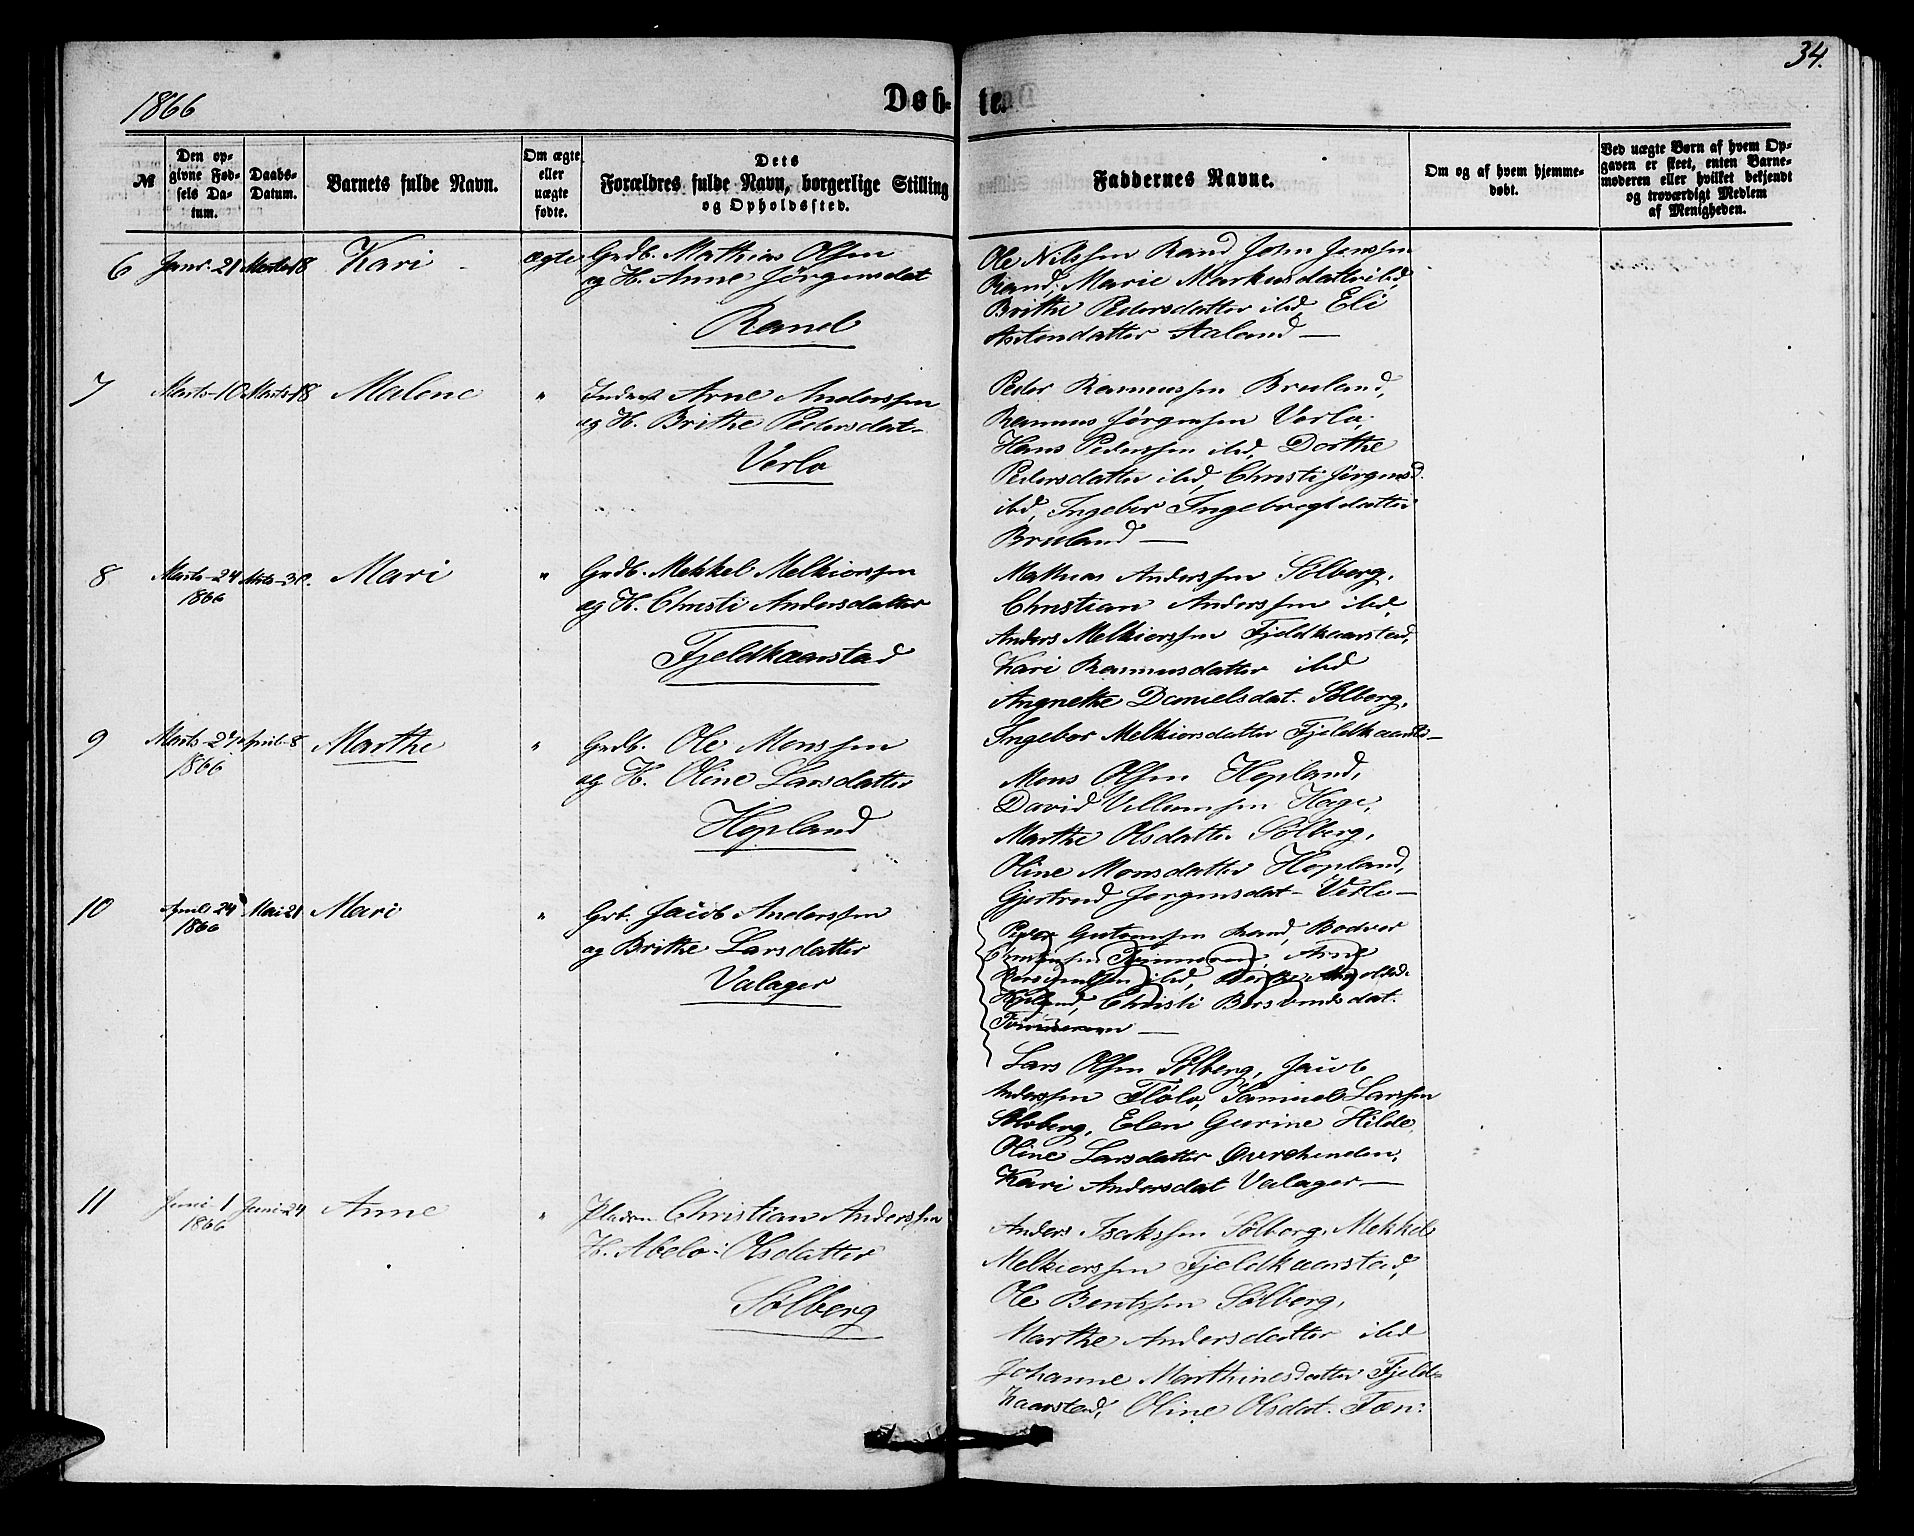 34.
1866
Døb-
te.
№
Den op-
givne Fød-
sels Da-
tum.
Daabs-
Datum.
Barnets fulde Navn.
Om ægte
eller
uægte
fødte.
Dets
Forældres fulde Navn, borgerlige Stilling
og Opholdssted.
Faddernes Navne.
Om og af hvem hjemme-
døbt.
Ved uægte Børn af hvem Op-
gaven er skeet, enten Barne-
moderen eller hvilket bekjendt
og troværdigt Medlem
af Menigheden.
6 Janr. 21 Marts 18 Kari ægte Grdb. Mathias Olsen
og H. Anne Jørgensdat
Rand
Ole Nilssen Rand John Jenssen
Rand, Marie Markusdatter ibd,
Brithe Pedersdatter ibd, Eli
datter Aaland —
7 Marts 10 Marts 18 Malene " Inderst Arne Anderssen
og H. Brithe Pedersdat-
Verlo
Peder Rasmussen Bruland,
Rasmus Jørgensen Verlo,
Hans Pederssen ibd, Dorthe
Pedersdatter ibd, Christi Jørgensd.
ibd, Ingebor Ingebregtdatter
Bruland —
8 Marts 24 1866 Mts 30. Mari " Grdb. Mekkel Melkiorssen
og H. Christi Andersdatter
Fjeldkaarstad
Mathias Anderssen Sølberg,
Christian Anderssen ibd,
Anders Melkiorssen Fjeldkaarstad,
Kari Rasmusdatter ibd
Angnethe Danielsdat. Sølberg,
Ingebor Melkiorsdatter Fjeldkaarst-
9 Marts 27 1866 April 8 Marthe " Grdb. Ole Monssen
og H. Oline Larsdatter
Hopland
Mons Olsen Hopland,
David Villumsen Hage,
Marthe Olsdatter Sølberg,
Oline Monsdatter Hopland,
Gjertrud Jørgensdat- Verlo —
10 April 24 1866 Mai 21 Mari " Grb. Jacob Anderssen
og Brithe Larsdatter
Valager
Peder Guttormsen Rand, Bodvar
Arne
ibd,
Hopland, Christi Bersvendsdat.
Lars Olsen Sølberg, Jacob
Anderssen Florø, Samuel Larssen
Solvberg, Elen Gurine Hilde,
Oline Larsdatter
Kari Andersdat Valager —
11 Juni 1 1866 Juni 24 Anne " Pladsm Christian Anderssen
H. Abelo: Olsdatter
Sølberg
Anders Isakssen Sølberg, Mekkel
Melkiorssen Fjeldkaarstad,
Ole Bentssen Sølberg,
Marthe Andersdatter ibd
Johanne Marthinesdatter Fjeld-
kaarstad, Oline Olsdat. Tøn: